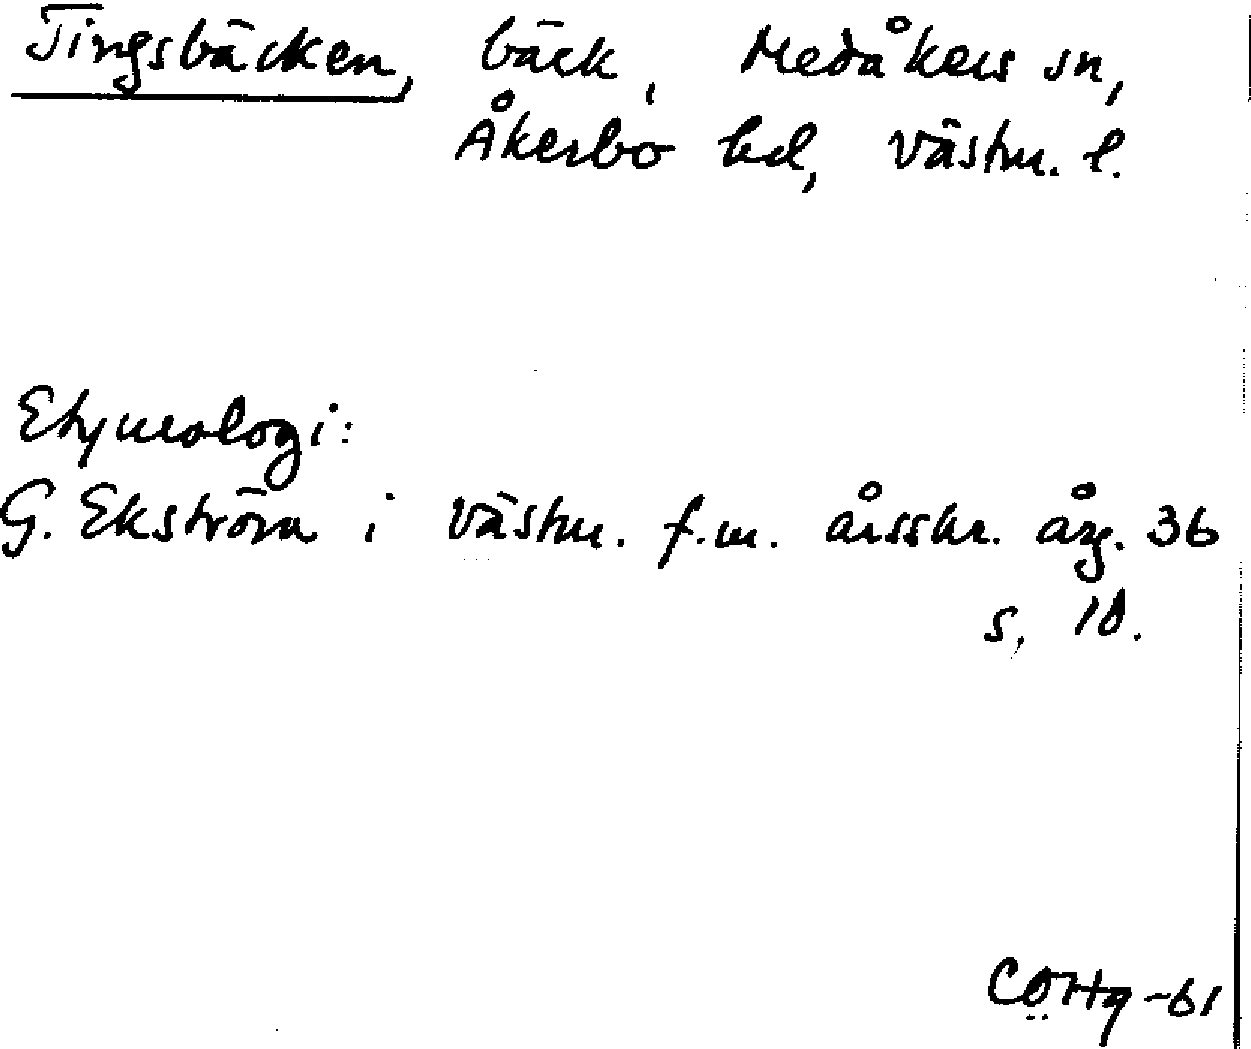 Tingsbäcken, bäck, Medåkers sn,
Åkerbo hd, Västm. l.
Etymologi:
G. Ekström i Västm. f.m. årsskr. årg. 36
s. 10.
-61